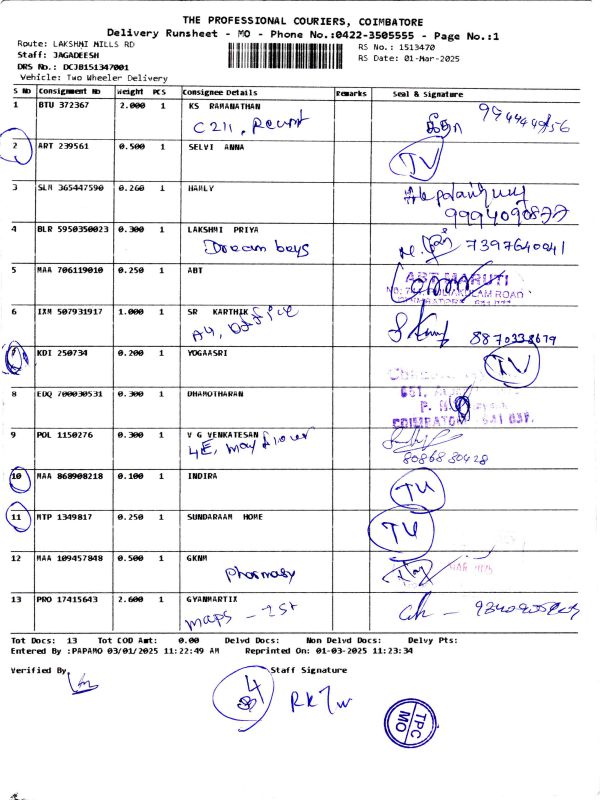 THE PROFESSIONAL COURIERS, COIMBATORE
Delivery Runsheet - MO - Phone No.:0422-3505555 - Page No.:1
Route: LAKSHMI MILLS RD
Staff: JAGADEESH
DRS No.: DCJB151347001
Vehicle: Two Wheeler Delivery
RS No.: 1513470
RS Date: 01-Mar-2025
S No Consignment No Weight PCS Consignee Details Remarks Seal & Signature
1 BTU 372367 2.000 1 KS RAMANATHAN
C211,
2 ART 239561 0.500 1 SELVI ANNA
3 SLM 365447590 0.260 1 HAMLY
9994090877
4 BLR 5950350023 0.300 1 LAKSHMI PRIYA
Dream boys 7397640041
5 MAA 706119010 0.250 1 ABT
ABT MARUTI
6 IXM 507931917 1.000 1 SR KARTHIK
A4, 8870338679
7 KDI 250734 0.200 1 YOGAASRI
8 EDQ 700030531 0.300 1 DHAMOTHARAN
9 POL 1150276 0.300 1 V G VENKATESAN
4E, mayflower 8086880428
10 MAA 868908218 0.100 1 INDIRA
11 MTP 1349817 0.250 1 SUNDARAAM HOME
12 MAA 109457848 0.500 1 GKNM
Pharmasy
13 PRO 17415643 2.600 1 GYANMARTIX
maps - 1st
Tot Docs: 13 Tot COD Amt: 0.00 Delvd Docs: Non Delvd Docs: Delvy Pts:
Entered By :PAPAMO 03/01/2025 11:22:49 AM Reprinted On: 01-03-2025 11:23:34
Verified By Staff Signature
4
TPC
MO